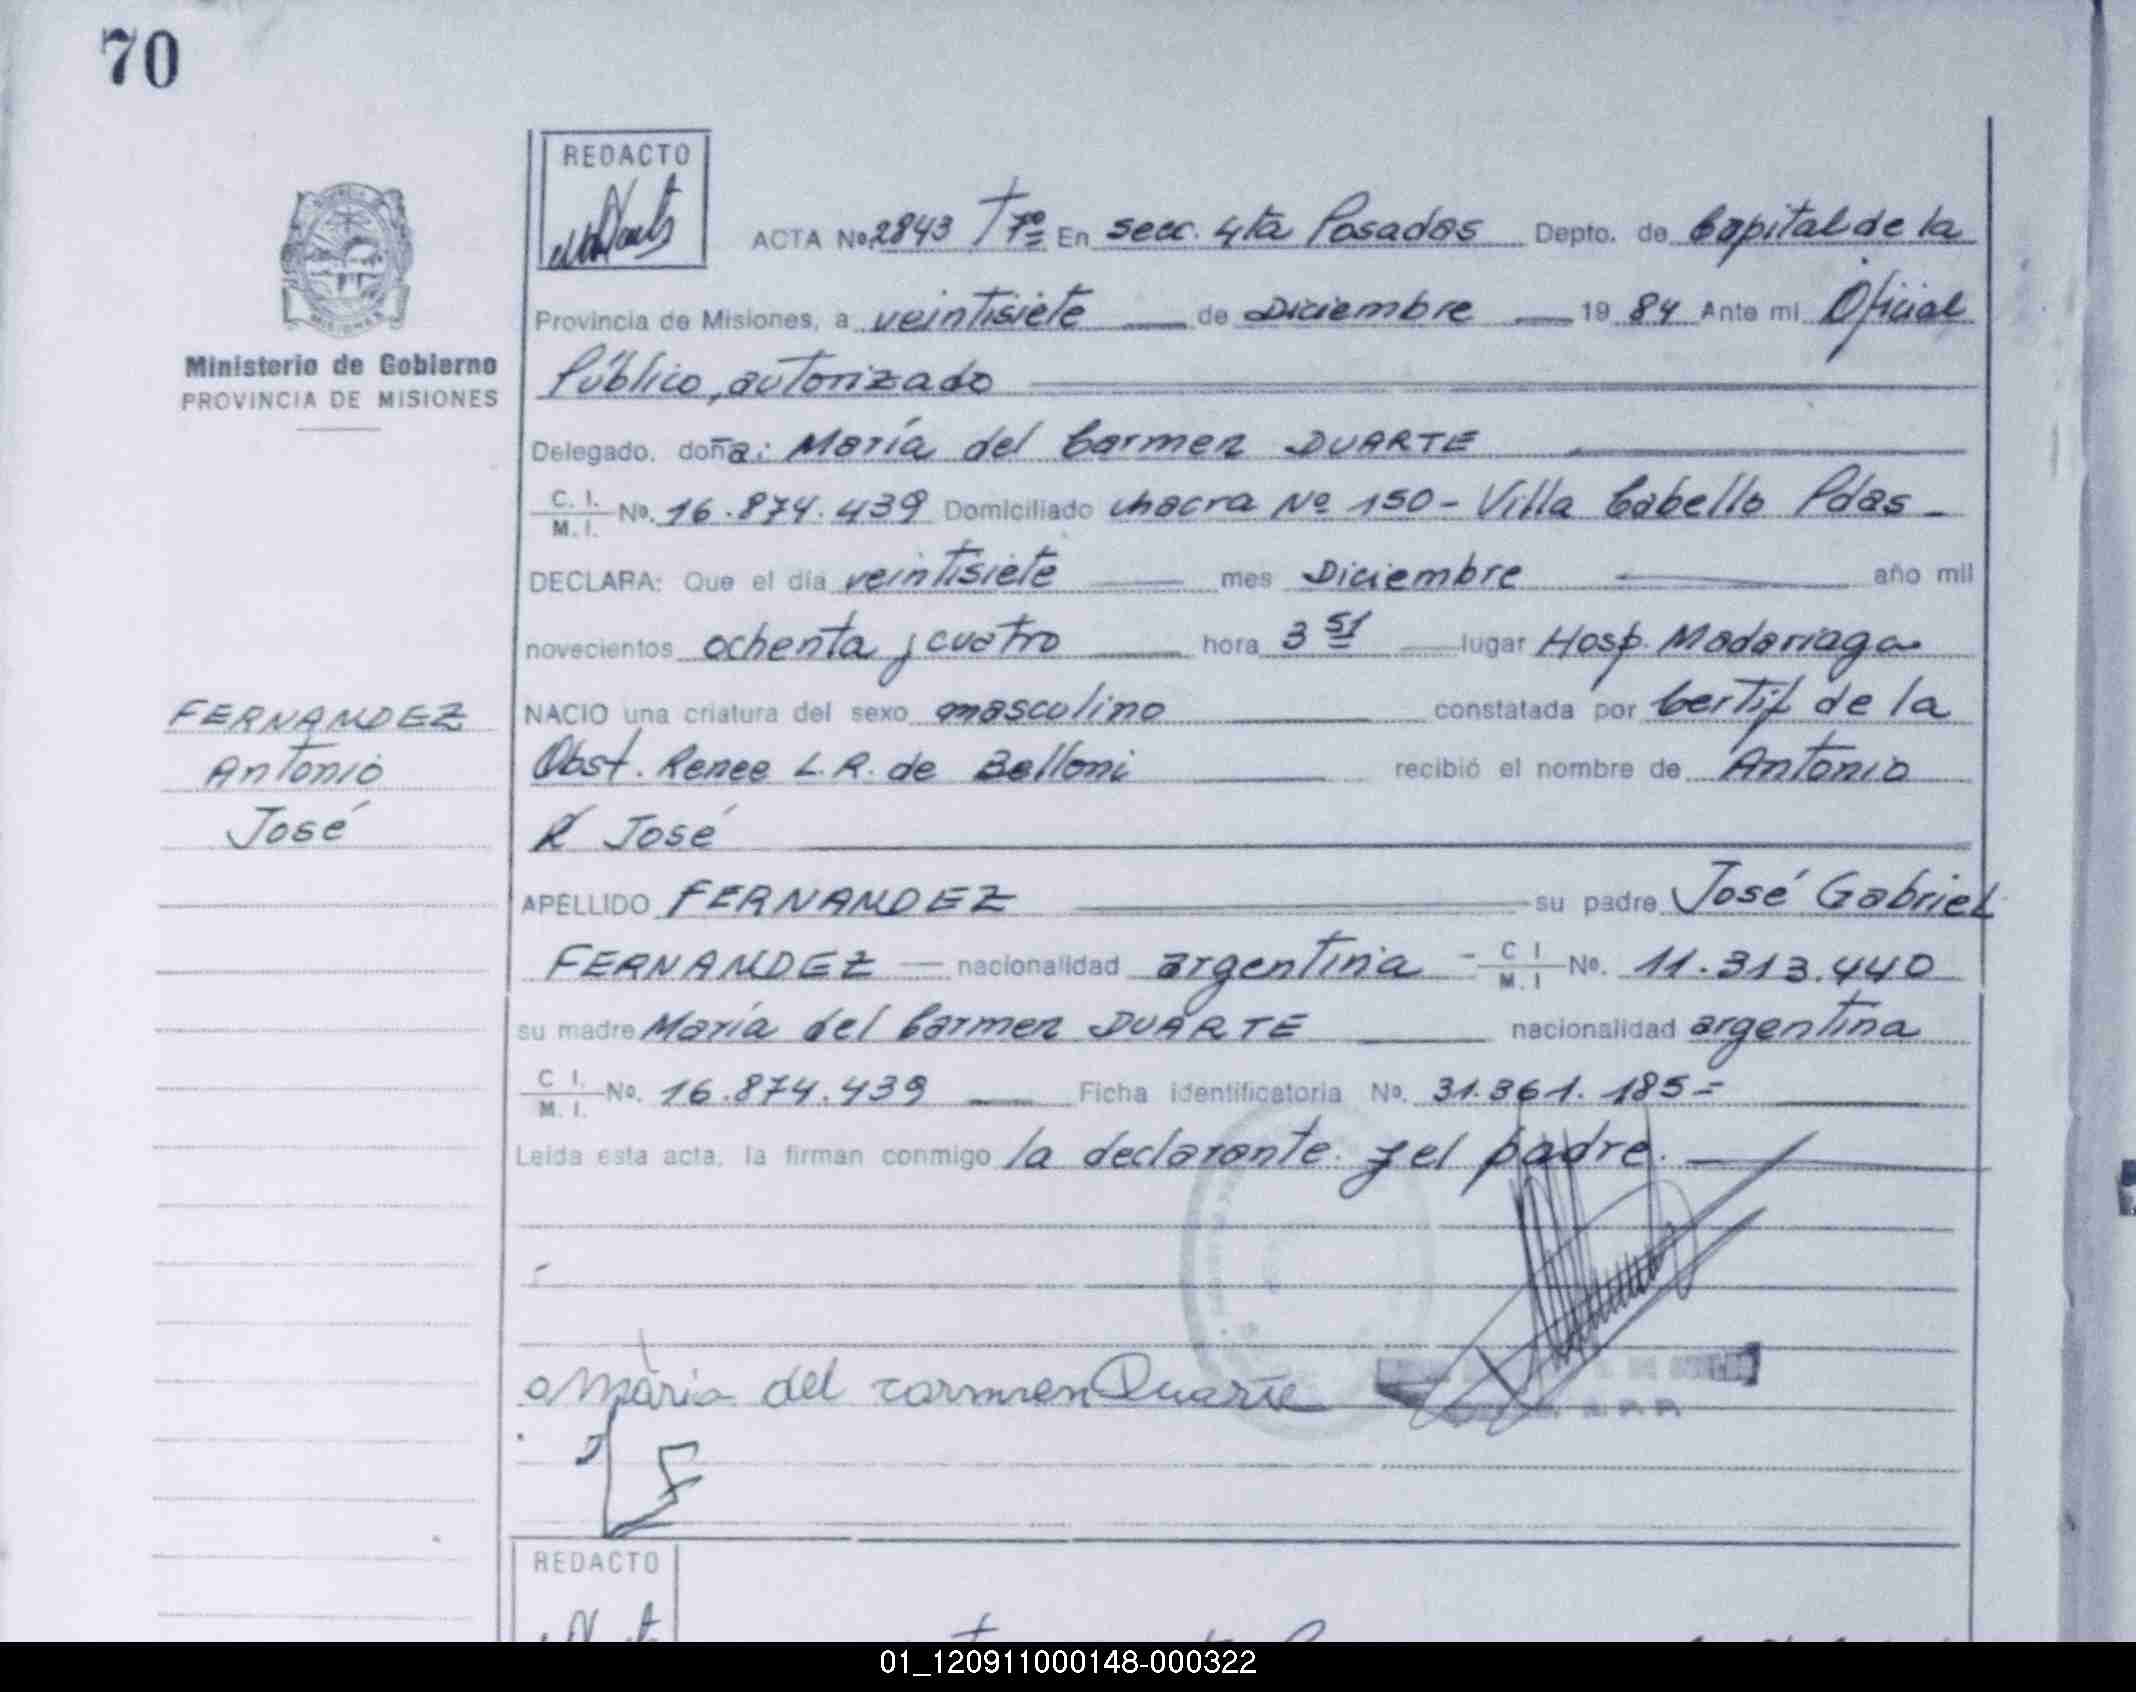 70
REDACTO
ACTA No. 2843 Tº 7º En secc. 4ta Posadas Depto. de Capital de la
Provincia de Misiones, a veintisiete de Diciembre 1984 Ante mi Oficial
Ministerio de Gobierno
PROVINCIA DE MISIONES
Público, autorizado
Delegado, doña: María del Carmen DUARTE
C. I. / M. I. No. 16.874.439 Domiciliado chacra Nº 150 - Villa Cabello Pdas -
DECLARA: Que el día veintisiete mes Diciembre año mil
novecientos ochenta y cuatro hora 3 51 lugar Hosp. Madariaga
FERNANDEZ
Antonio
José
NACIO una criatura del sexo masculino constatada por Certif de la
Obst. Renee L. R. de Belloni recibió el nombre de Antonio
José
APELLIDO FERNANDEZ su padre José Gabriel
FERNANDEZ nacionalidad argentina - C I / M. I No. 11.313.440
su madre María del Carmen DUARTE nacionalidad argentina
C I. / M. I. No. 16.874.439 Ficha identificatoria No. 31.361.185=
Leída esta acta, la firman conmigo la declarante y el padre.
Maria del carmen Duarte
REDACTO
01_120911000148-000322